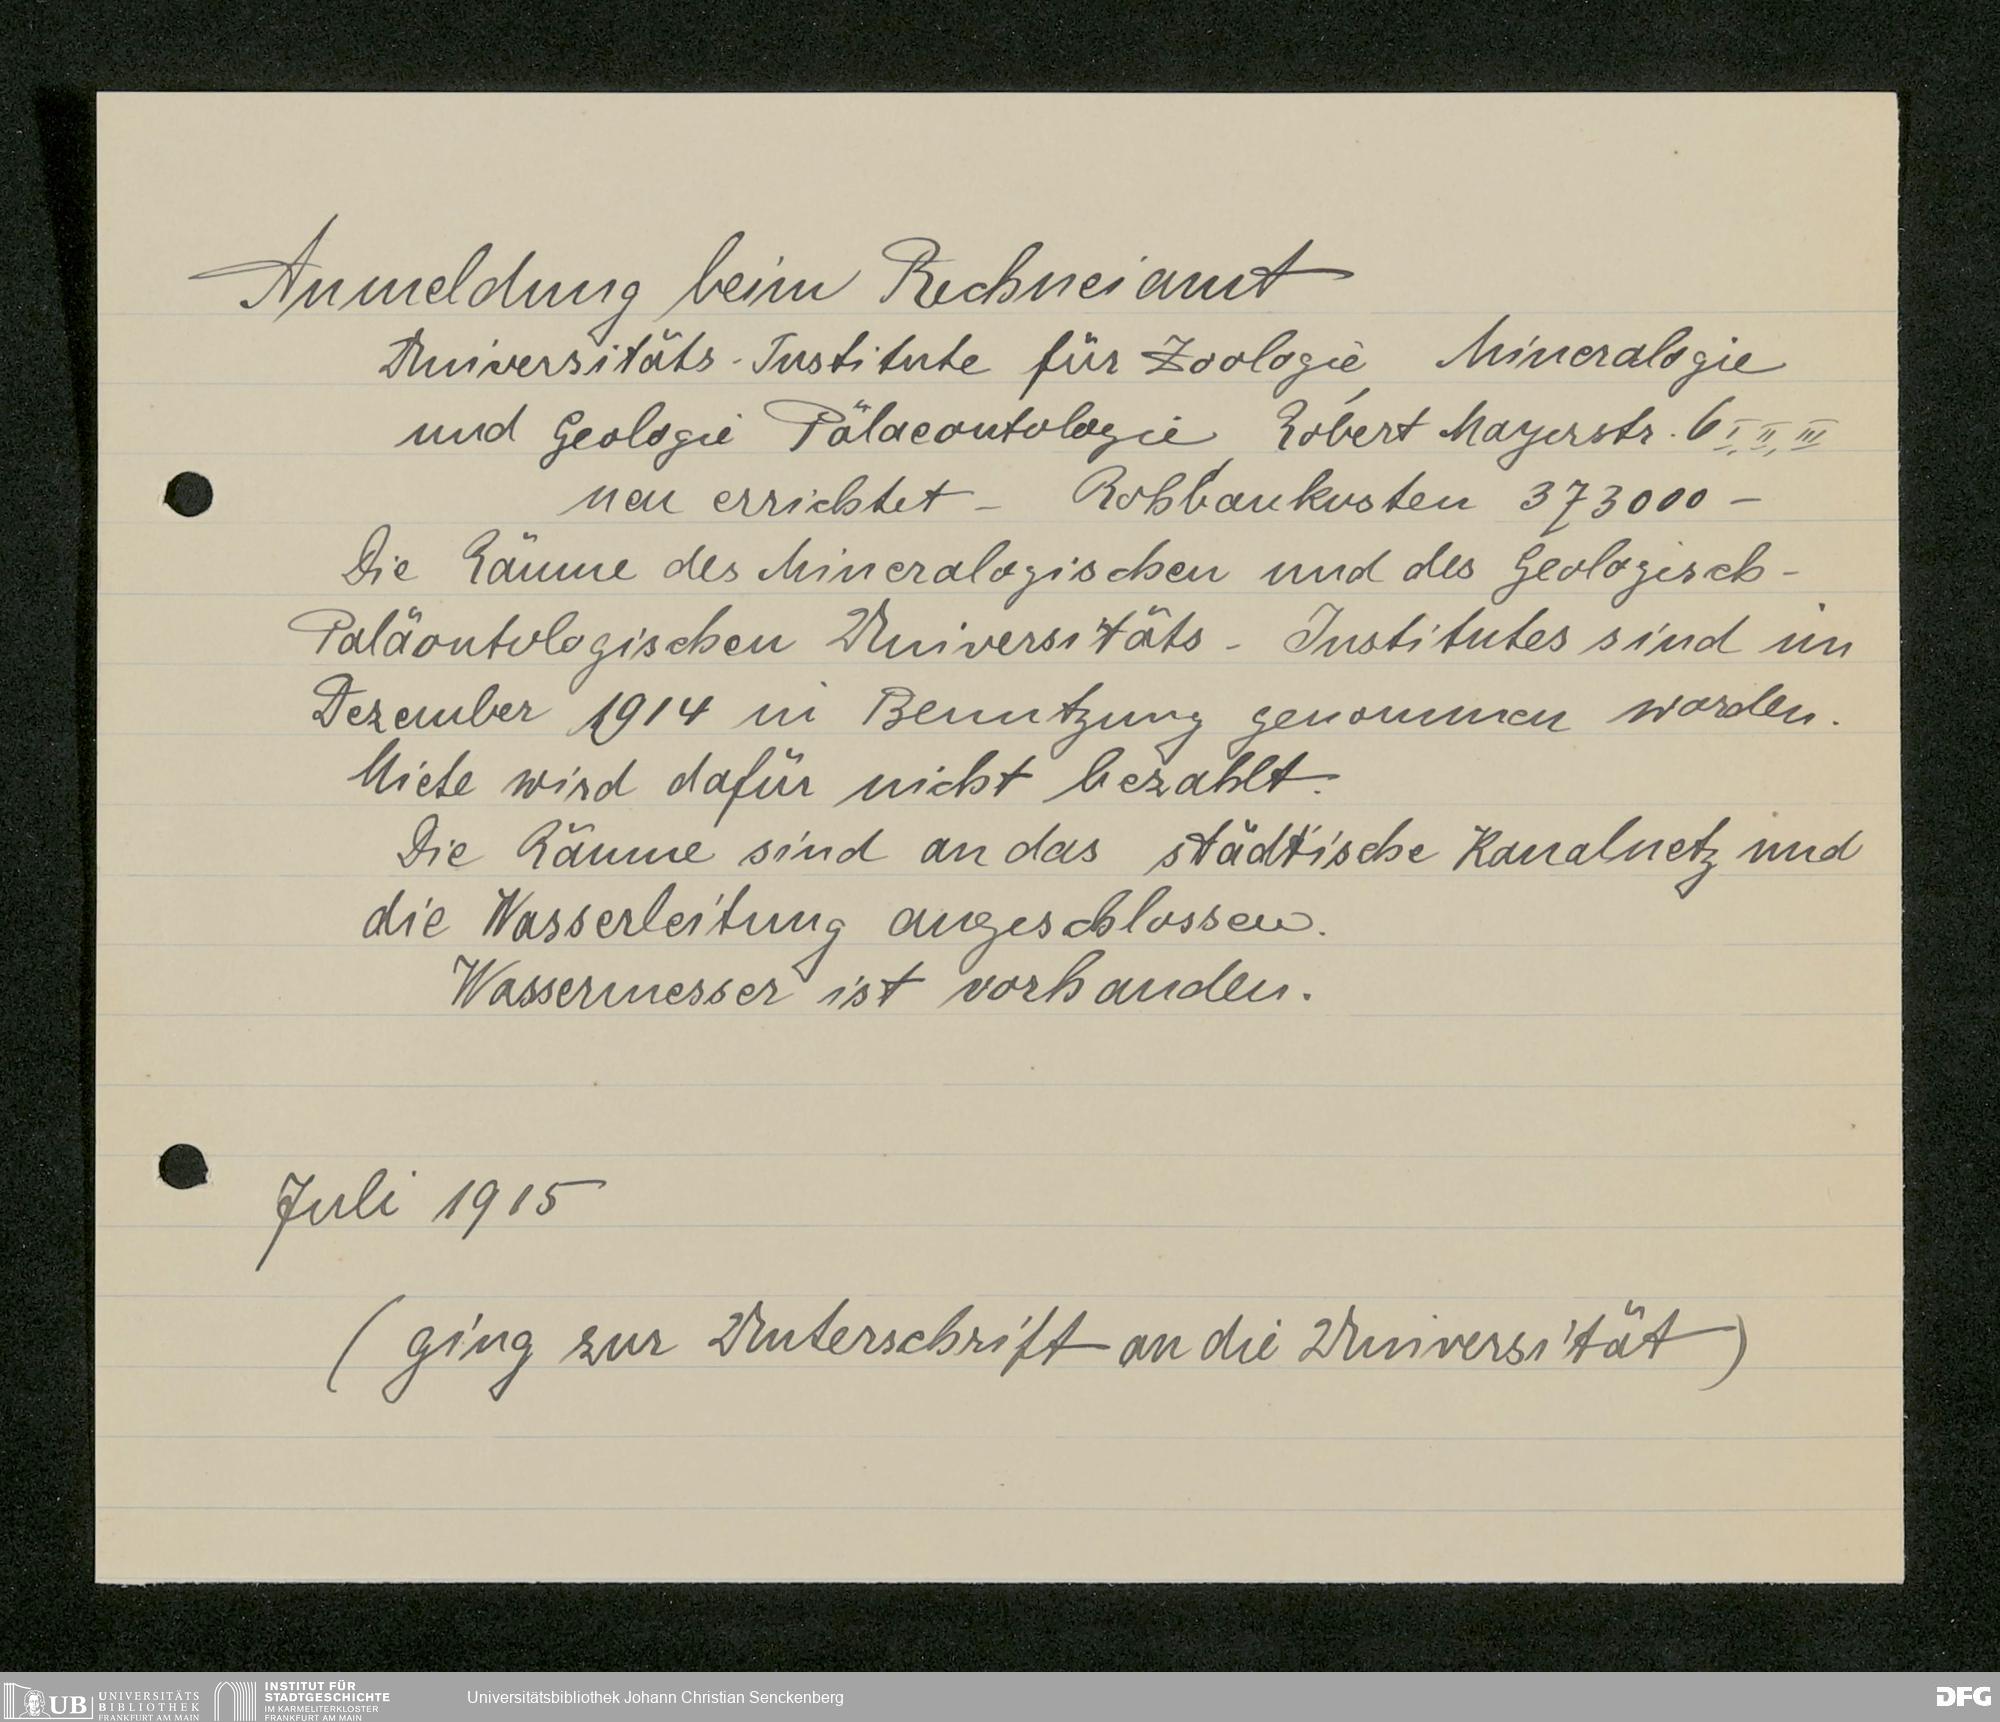 Anmeldung beim Rechneiamt
Universitäts-Institute für Zoologie, Mineralogie
und Geologie Päläeontologie, Robert Mayerstr. 6 I, II, III
neu errichtet - Rohbaukosten 373000 -
Die Räume des Mineralogischen und des Geologisch-
Paläontologischen Universitäts-Institutes sind im
Dezember 1914 in Benutzung genommen worden.
Miete wird dafür nicht bezahlt.
Die Räume sind an das städtische Kanalnetz und
die Wasserleitung angeschlossen.
Wassermesser ist vorhanden.
Juli 1915
(ging zur Unterschrift an die Universität)
UB UNIVERSITÄTS BIBLIOTHEK FRANKFURT AM MAIN
INSTITUT FÜR STADTGESCHICHTE IM KARMELITERKLOSTER FRANKFURT AM MAIN
Universitätsbibliothek Johann Christian Senckenberg
DFG